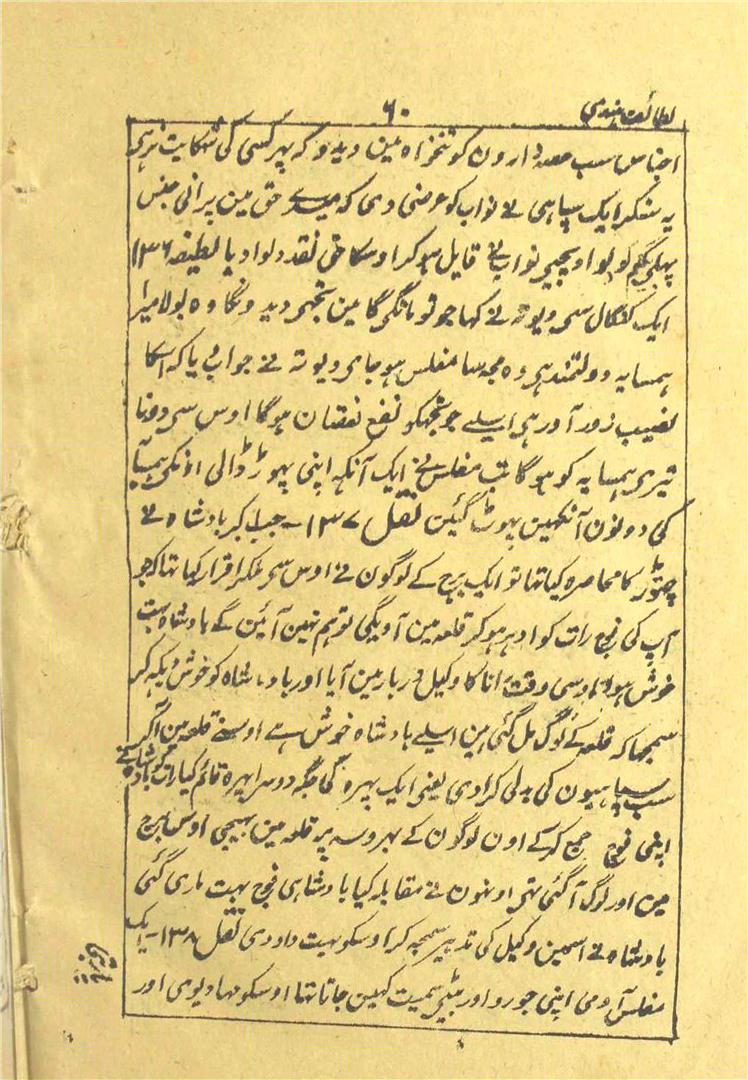 لطائف ہندی
۶۰
اجناس سب عہدہ دارون کو تنخواہ مین دیدو کہ پھر کسی کی شکایت نرہی
یہ سنکر ایک سپاہی نے نواب کو عرضی دی کہ میرے حق مین پرانی جنس
پہلی بیگم کو لوا دیجیی نواب نے قایل ہوکر اوسکا حق نقد دلوا دیا لطیفہ ۱۳۶
ایک کنگال سی دیوتہ نے کہا جو تو مانگی گا مین تجہی دیدونگا وہ بولا میرا
ہمسایہ دولتمند ہی وہ مجہ سا مفلس ہوجای دیوتہ نے جواب دیا کہ اسکا
نصیب زور آور ہی اسلیے جو تجہکو نفع نقصان ہوگا اوس سی دونا
تیری ہمسایہ کو ہوگا تب مفلس نے ایک آنکہ اپنی پہوڑ ڈالی اونکی ہمسایہ
کی دونون آنکہین پہوٹ گئین نقل ۱۳۷ ۔ جب اکبر بادشاہ نے
چتوڑ کا محاصرہ کیا تہا تو ایک برج کے لوگون نے اوس سی ملکر اقرار کیا تہا کہ جو
آپ کی فوج رات کو ادہر ہوکر قلعہ مین آویگی تو ہم نہین آئین گے بادشاہ بہت
خوش ہوا اوسی وقت رانا کا وکیل دربار مین آیا اور بادشاہ کو خوش دیکہ کر
سمجہا کہ قلعہ کے لوگ مل گئی ہین اسلیے بادشاہ خوش ہے اوسنے قلعہ مین آکر
سب سپاہیون کی بدلی کرا دی یعنی ایک پہرہ کی جگہ دوسرا پہرہ قائم کیا رات کو بادشاہ نے
اپنی فوج جمع کرکے اون لوگون کے بہروسہ پر قلعہ مین بہیجی اوس برج
مین اور لوگ آگئی تہی اونہون نے مقابلہ کیا بادشاہی فوج بہت ماری گئی
بادشاہ نے اسمین وکیل کی تدبیر سمجہ کر اوسکو بہت داد دی نقل ۱۳۸ ۔ ایک
مفلس آدمی اپنی جورو اور بیٹی سمیت کہین جاتا تہا اوسکو مہادیوجی اور